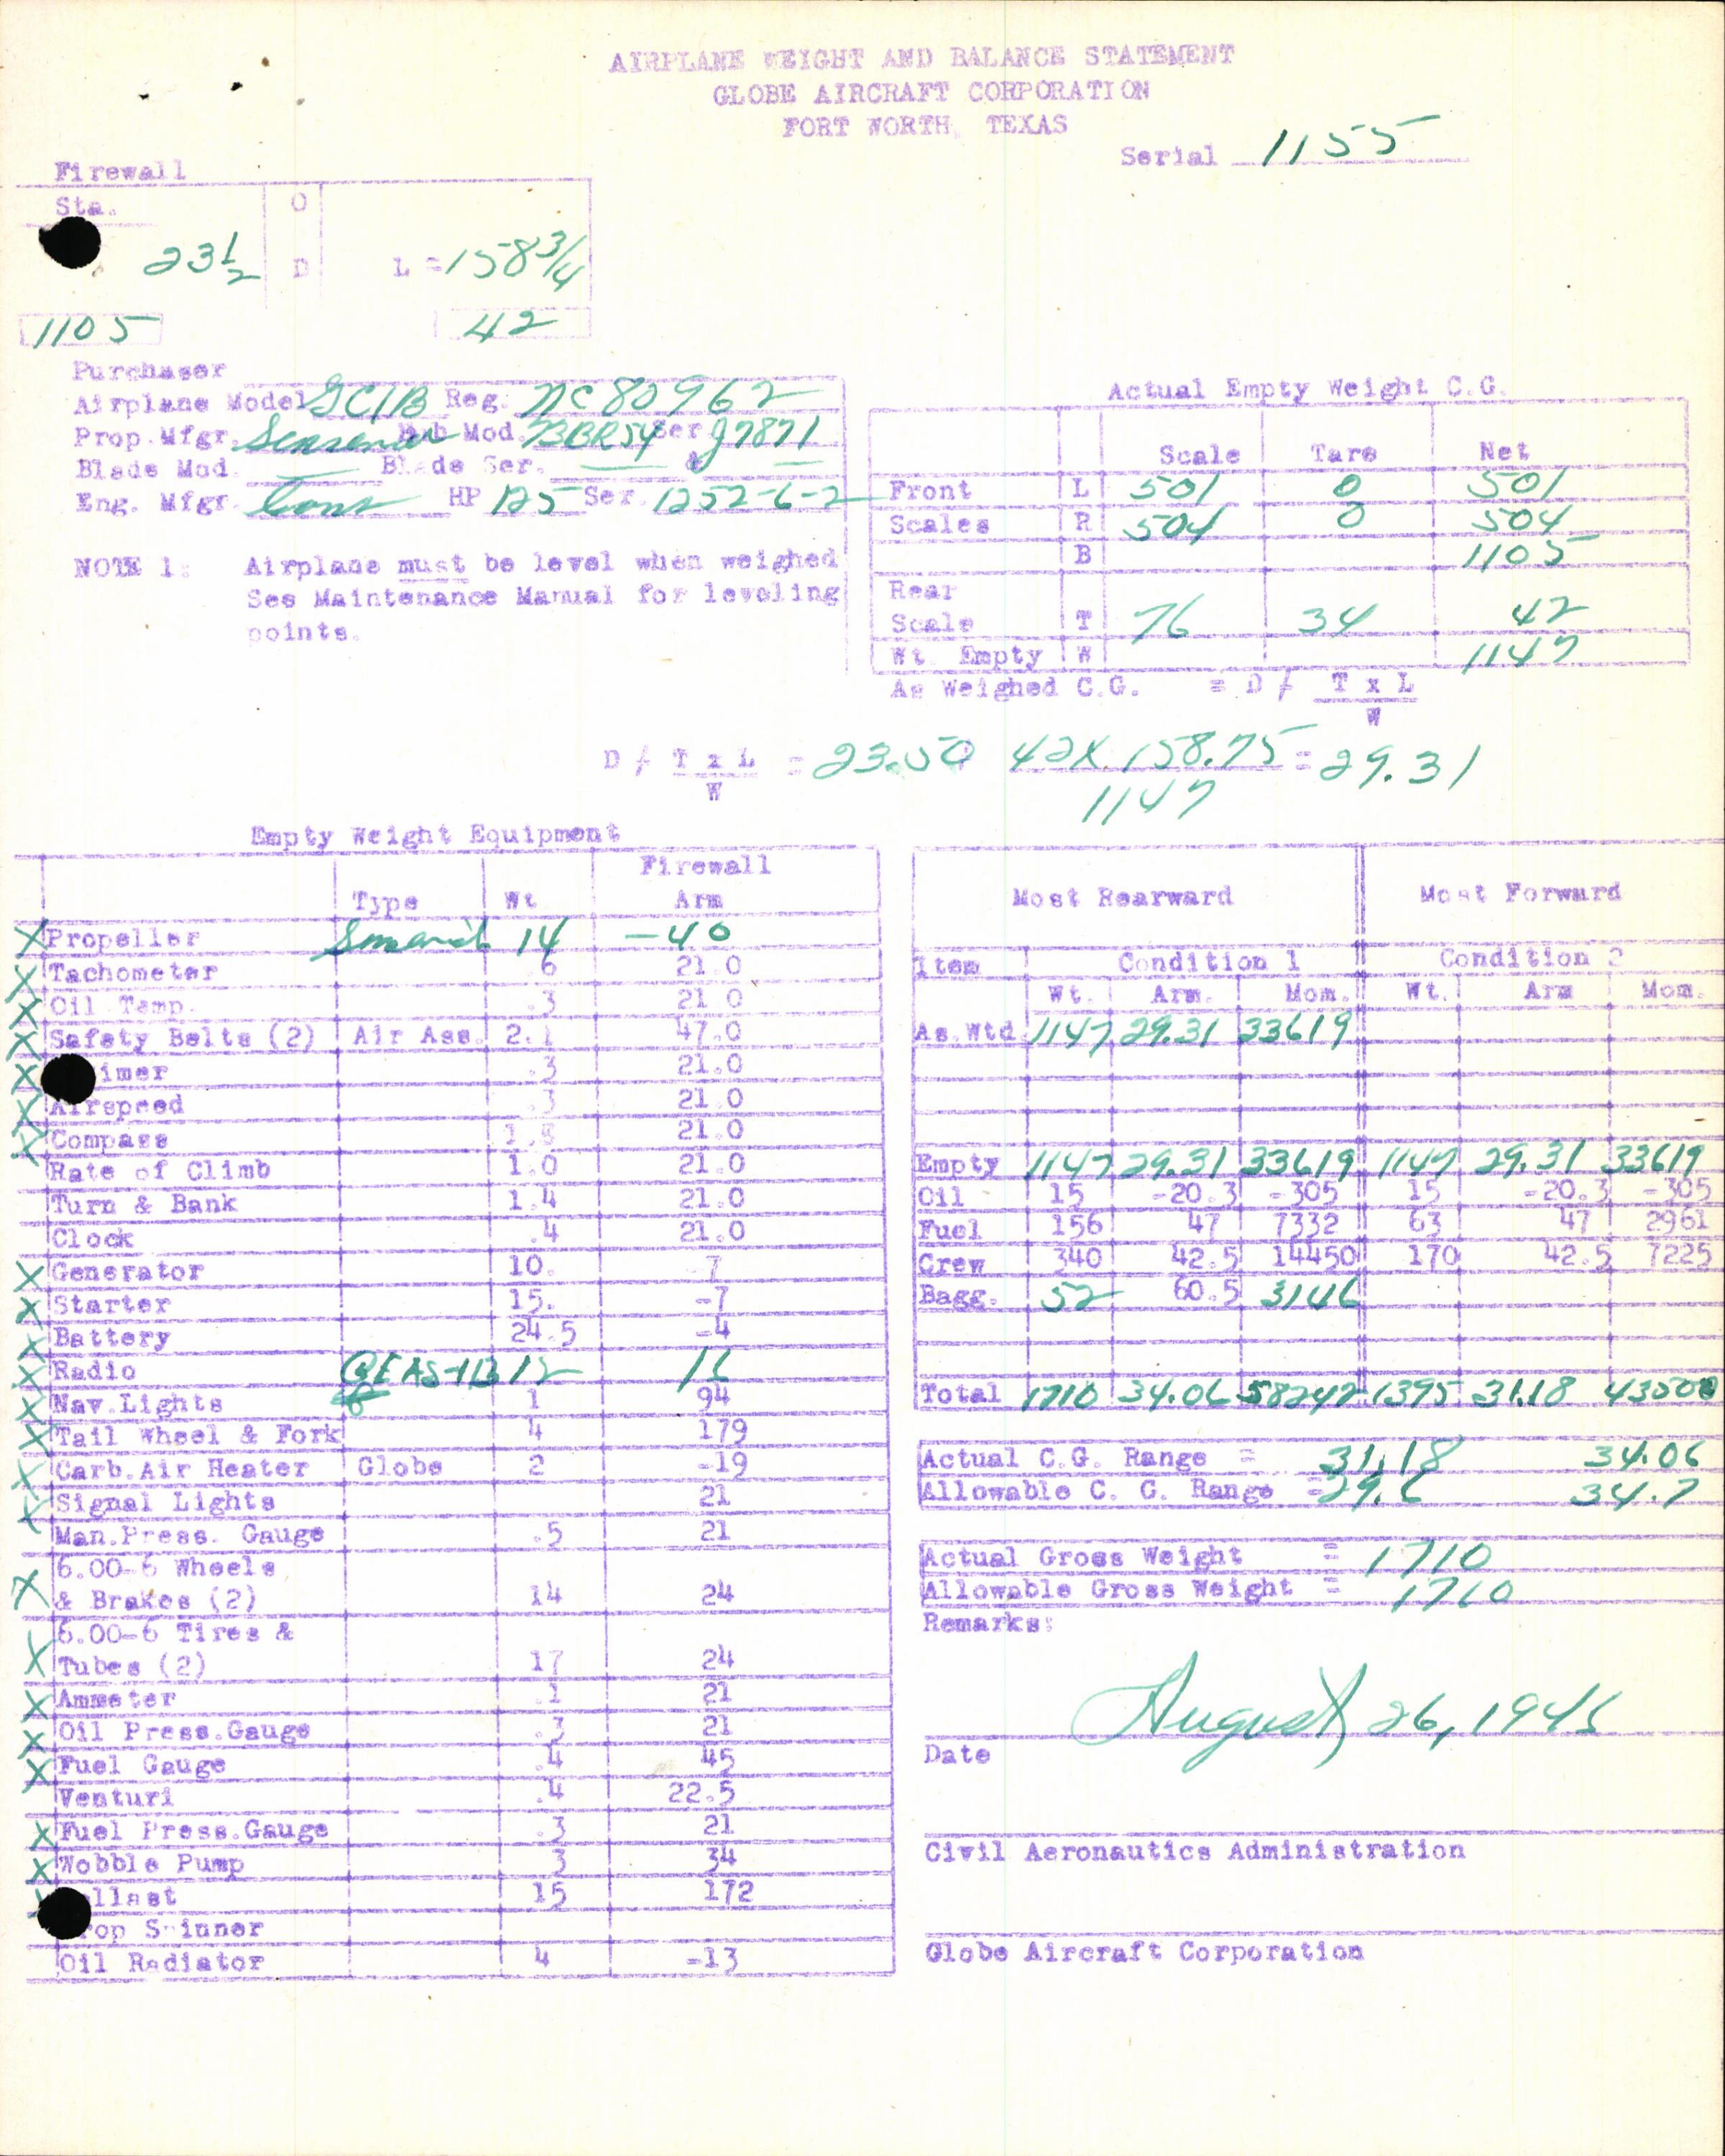 AIRPLANE WEIGHT AND BALANCE STATEMENT
GLOBE AIRCRAFT CORPORATION
FORT WORTH, TEXAS
Serial 1155
Firewall
Sta. O
23 1/2 D L = 158 3/4
1105 42
Purchaser
Airplane Model GC1B Reg. NC80962
Prop.Mfgr. Hub Mod. Ser
Blade Mod. Blade Ser. &
Eng. Mfgr. Cont HP 125 Ser. 1252-6-2
NOTE 1: Airplane must be level when weighed
See Maintenance Manual for leveling
points.
Actual Empty Weight C.G.
Scale Tare Net
Front L 501 0 501
Scales R 504 0 504
B 1105
Rear
Scale T 76 34 42
Wt. Empty W 1147
As Weighed C.G. = D / T x L
W
D / T x L = 23.50 42 X 158.75 = 29.31
W 1147
Empty Weight Equipment
Firewall
Type Wt Arm
X Propeller 14 -40
X Tachometer .6 21.0
X Oil Temp. .3 21.0
X Safety Belts (2) Air Ass. 2.1 47.0
X imer .3 21.0
X Airspeed .3 21.0
X Compass 1.8 21.0
Rate of Climb 1.0 21.0
Turn & Bank 1.4 21.0
Clock .4 21.0
X Generator 10. -7
X Starter 15. -7
X Battery 24.5 -4
X Radio 12 16
X Nav.Lights 1 94
X Tail Wheel & Fork 4 179
X Carb.Air Heater Globe 2 -19
X Signal Lights 21
Man.Press. Gauge .5 21
6.00-6 Wheels
X & Brakes (2) 14 24
6.00-6 Tires &
X Tubes (2) 17 24
X Ammeter .1 21
X Oil Press.Gauge .3 21
X Fuel Gauge .4 45
Venturi .4 22.5
X Fuel Press.Gauge .3 21
X Wobble Pump 3 34
X llast 15 172
rop S inner
Oil Radiator 4 -13
Most Rearward Most Forward
Item Condition 1 Condition 2
Wt. Arm. Mom. Wt. Arm Mom.
As.Wtd 1147 29.31 33619
Empty 1147 29.31 33619 1147 29.31 33619
Oil 15 -20.3 -305 15 -20.3 -305
Fuel 156 47 7332 63 47 2961
Crew 340 42.5 14450 170 42.5 7225
Bagg. 52 60.5 3146
Total 1710 34.06 58242 1395 31.18 43500
Actual C.G. Range = 31.18 34.06
Allowable C. G. Range = 29.6 34.7
Actual Gross Weight = 1710
Allowable Gross Weight = 1710
Remarks:
August 26, 1946
Date
Civil Aeronautics Administration
Globe Aircraft Corporation